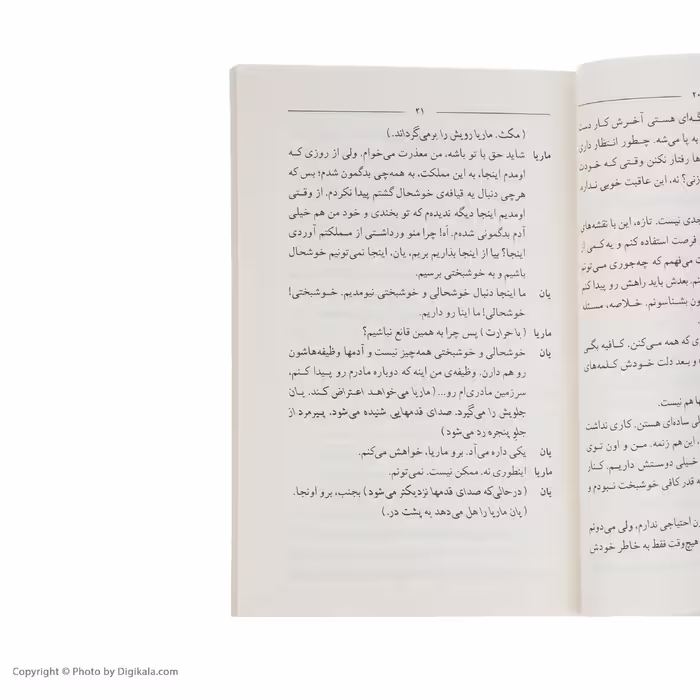 ۲۰
گه‌ای هستی آخرش کار دست
به پا می‌شه. چطور انتظار داری
ها رفتار نکنن وقتی که خودت
زنی؟ نه، این عاقبت خوبی نداره
جدی نیست. تازه، این با نقشه‌های
فرصت استفاده کنم و یه کمی از
ت می‌فهمم که چه‌جوری می‌تونم
نم. بعدش باید راهش رو پیدا کنم
ون بشناسونم. خلاصه، مسئله
ی که همه می‌کنن. کافیه بگی
) و بعد دلت خودش کلمه‌های
ها هم نیست.
لی ساده‌ای هستن. کاری نداشت
، این هم زنمه. من و اون توی
خیلی دوستش داریم. کنار
ه قدر کافی خوشبخت نبودم و
ون احتیاجی ندارم، ولی می‌دونم
هیچ‌وقت فقط به خاطر خودش
۲۱
( مکث. ماریا رویش را برمی‌گرداند.)
ماریا شاید حق با تو باشه، من معذرت می‌خوام. ولی از روزی که
اومدم اینجا، به این مملکت، به همه‌چی بدگمون شدم؛ بس که
هرچی دنبال یه قیافه‌ی خوشحال گشتم پیدا نکردم. از وقتی
اومدیم اینجا دیگه ندیده‌م که تو بخندی و خود من هم خیلی
آدم بدگمونی شده‌م. اَه! چرا منو ورداشتی از مملکتم آوردی
اینجا؟ بیا از اینجا بذاریم بریم، یان، اینجا نمی‌تونیم خوشحال
باشیم و به خوشبختی برسیم.
یان ما اینجا دنبال خوشحالی و خوشبختی نیومدیم. خوشبختی!
خوشحالی! ما اینا رو داریم.
ماریا ( با حرارت ) پس چرا به همین قانع نباشیم؟
یان خوشحالی و خوشبختی همه‌چیز نیست و آدمها وظیفه‌هاشون
رو هم دارن. وظیفه‌ی من اینه که دوباره مادرم رو پیدا کنم،
سرزمین مادری‌ام رو... ( ماریا می‌خواهد اعتراض کند. یان
جلویش را می‌گیرد. صدای قدمهایی شنیده می‌شود. پیرمرد از
جلو پنجره رد می‌شود )
یان یکی داره می‌آد. برو ماریا، خواهش می‌کنم.
ماریا اینطوری نه. ممکن نیست. نمی‌تونم.
یان ( در حالی‌که صدای قدمها نزدیکتر می‌شود ) بجنب، برو اونجا.
( یان ماریا را هل می‌دهد به پشت در.)
Copyright © Photo by Digikala.com